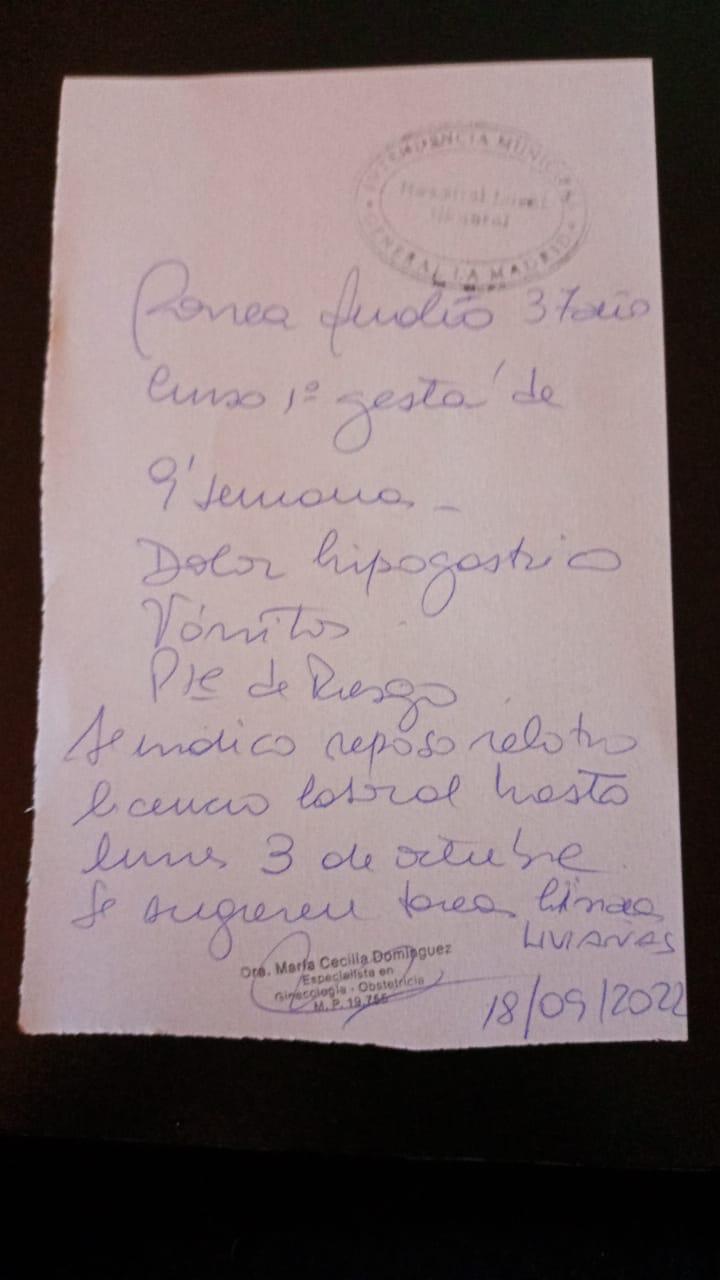 INTENDENCIA MUNICIPAL
Hospital Local
General
GENERAL LA MADRID
37 año
Curso 1º gesta de
9 semanas -
Dolor hipogastrico
Vómitos
de Riesgo
Se indico reposo relativo
licencia laboral hasta
lunes 3 de octubre
Se sugieren tareas
LIVIANAS
Dra. María Cecilia Dominguez
Especialista en
Ginecología - Obstetricia
M. P. 19.755
18/09/2022